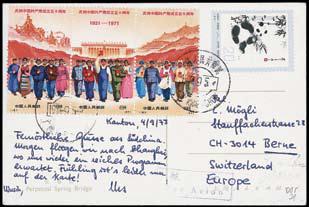 庆祝中国共产党成立五十周年
庆祝中国共产党成立五十周年
1921-1971
中国人民邮政
中国人民邮政
中国人民邮政
20
Kanton, 4/9/73
Fernöstliche Grüsse aus Südchina.
Morgen fliegen wir nach Shanghai
wo uns wieder ein reiches Programm
erwartet. Frühling ist's leider nur
auf der Karte!
Urs
Perpetual Spring Bridge
L. Mügli
Stauffacherstrasse
CH-3014 Berne
Switzerland
Europe